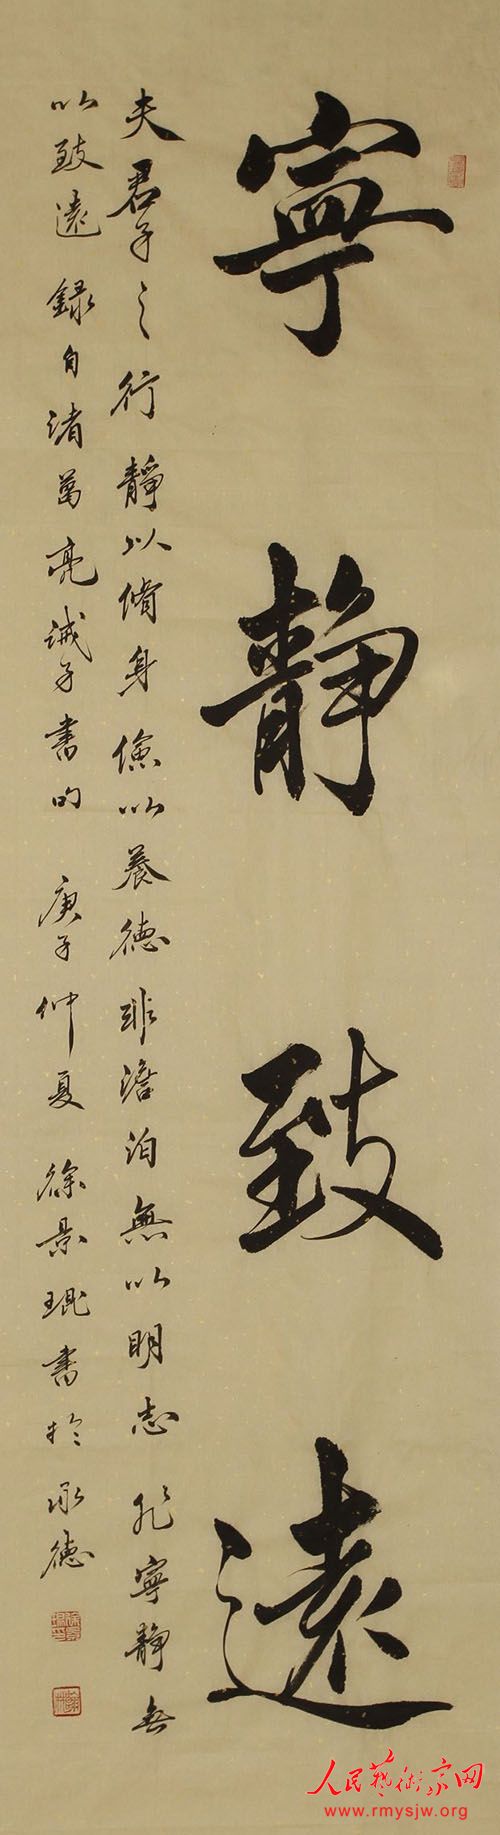 寧靜致遠
夫君子之行靜以脩身儉以養德非澹泊無以明志非寧靜無
以致遠 錄自諸葛亮誡子書句 庚子仲夏 徐景琨書於承德
人民藝術家网
www.rmysjw.org